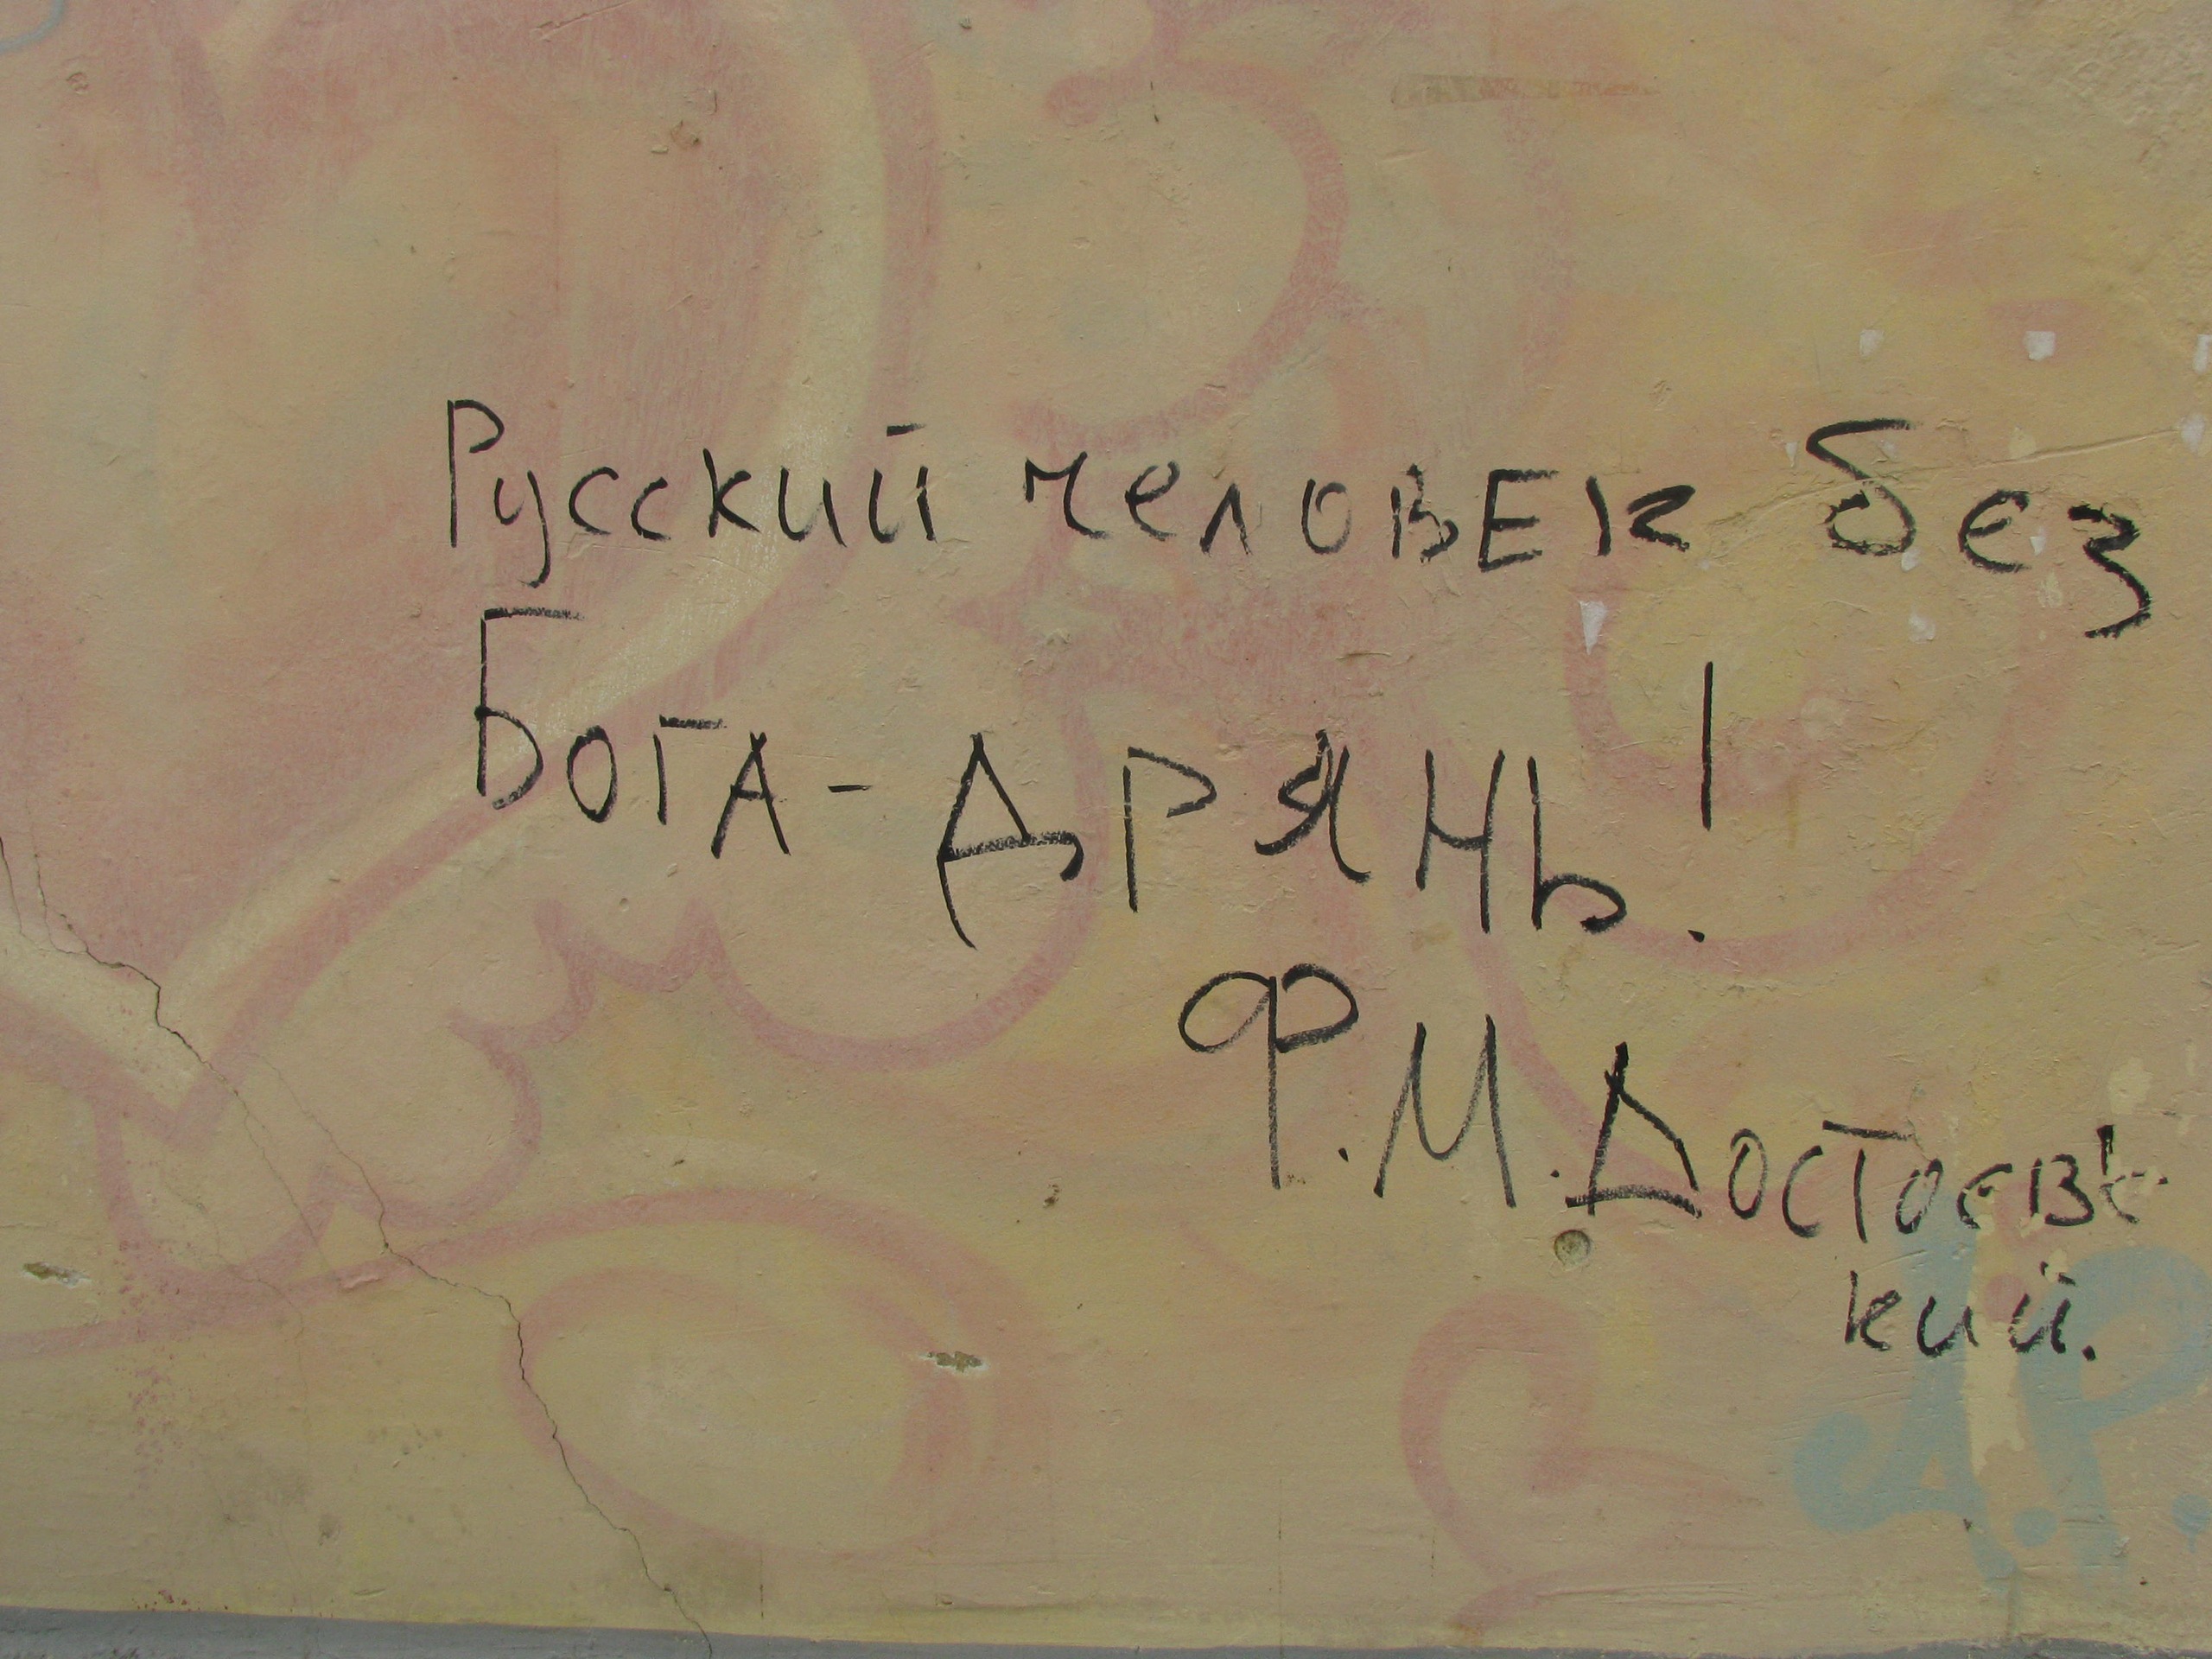 Русский человек без
Бога - дрянь!
Ф.М. Достоевс
кий.
А.Р.